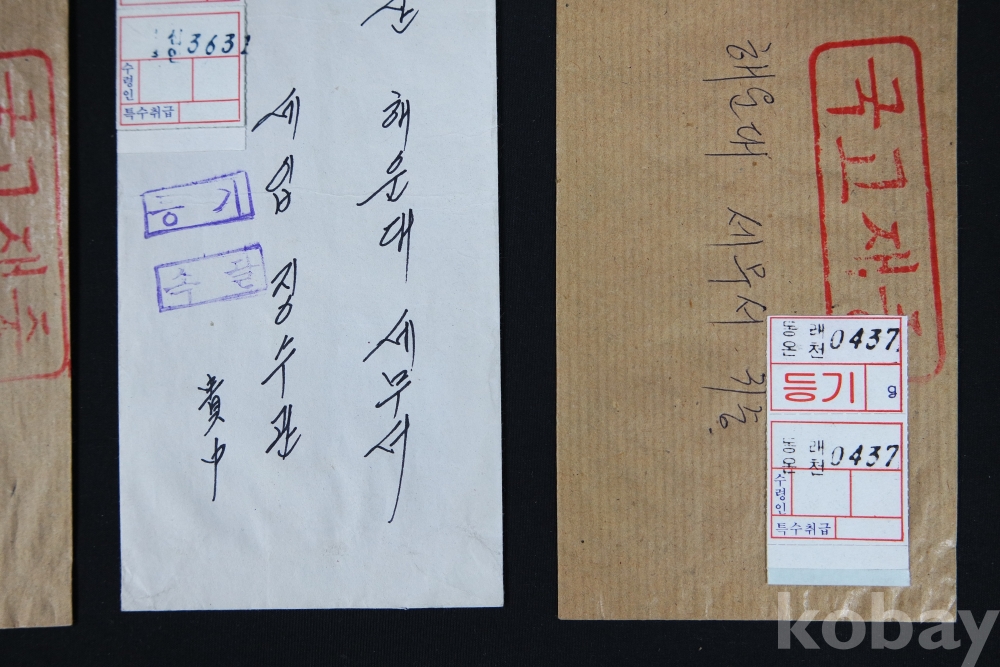 국고재중
3632
수령인
특수취급
등기
속달
산 해운대 세무서
세입 징수관
貴中
해운대 세무서 귀중
국고재중
동래
온천 0437
등기 g
동래
온천 0437
수령인
특수취급
kobay